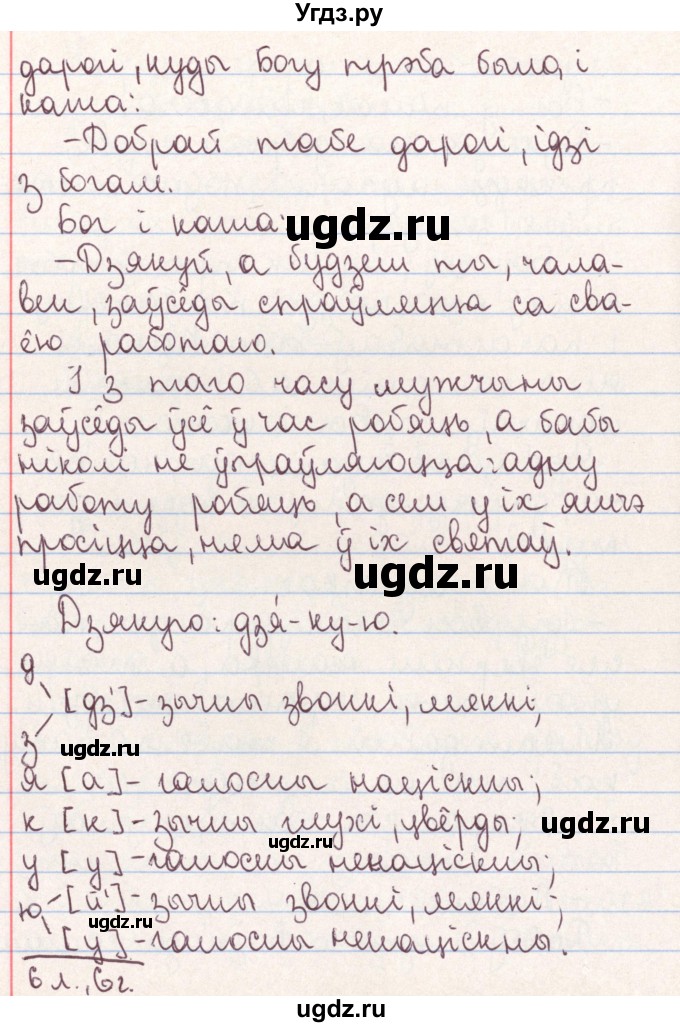 Угдз.ру
дарогі, куды Богу трэба было, і
кажа:
–Добрай табе дарогі, ідзі
з богам.
Бог і кажа:
ugdz.ru
–Дзякуй, а будзеш ты, чала-
век, заўсёды спраўляцца са сва-
ёю работаю.
І з таго часу мужчыны
заўсёды ўсё ў час робяць, а бабы
ніколі не ўпраўляюцца: адну
работу робяць, а сем у іх яшчэ
просіцца, няма ў іх святаў.
ugdz.ru
ugdz.ru
Дзякую: дзя́-ку-ю.
д
[дз'] – зычны звонкі, мяккі;
з
ugdz.ru
я [а] – галосны націскны;
к [к] – зычны глухі, цвёрды;
ugdz.ru
у [у] – галосны ненаціскны;
ю [й'] – зычны звонкі, мяккі;
ugdz.ru
[у] – галосны ненаціскны.
6 л., 6 г.
ugdz.ru